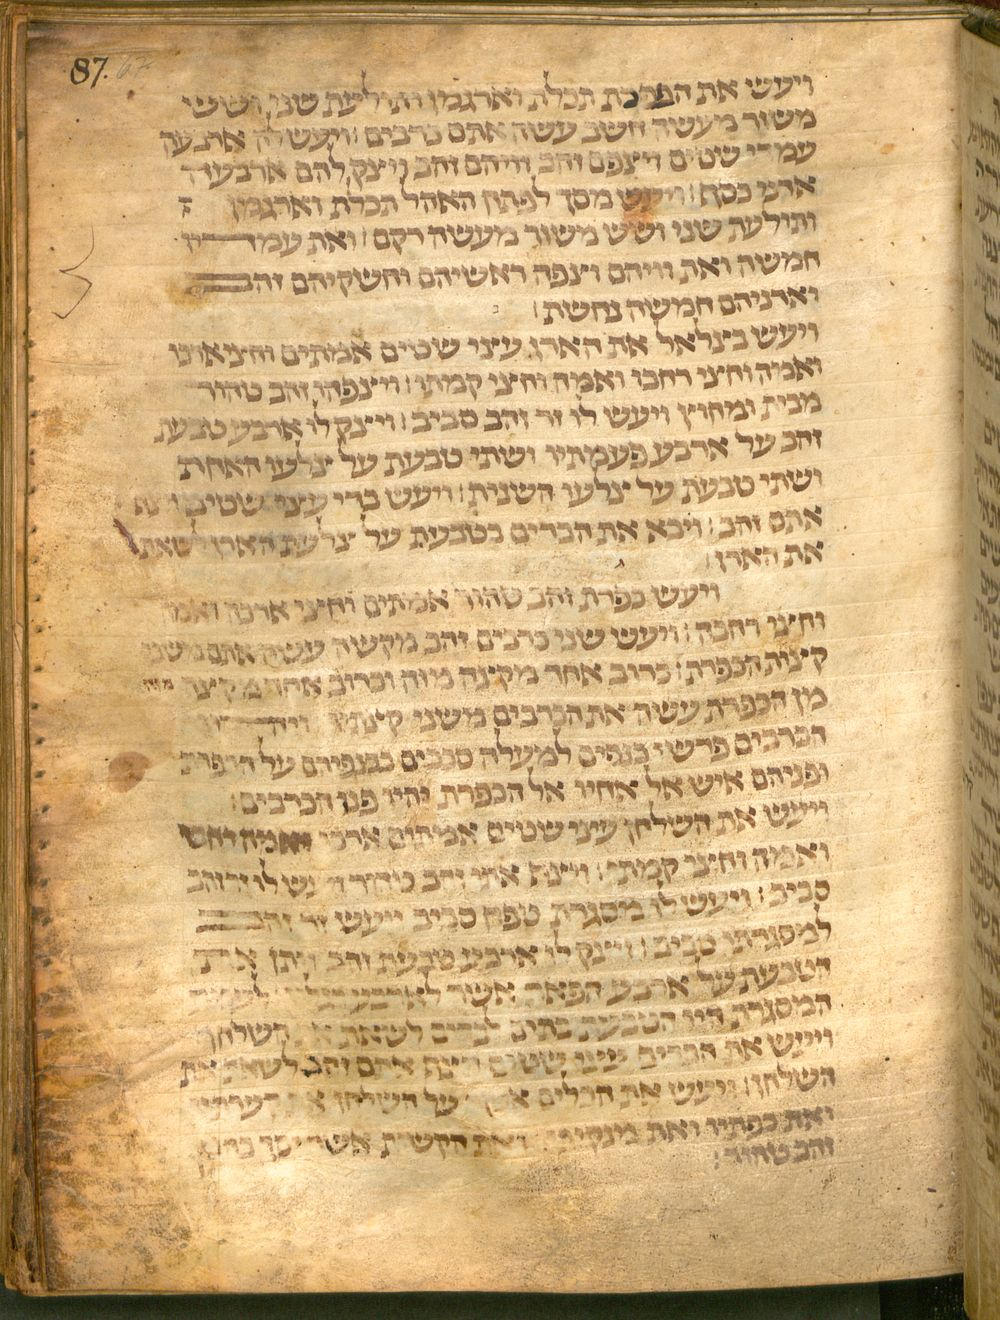 87. 67
ויעש את הפרכת תכלת וארגמן ותולעת שני ושש
משזר מעשה חשב עשה אתם כרבים ויעש לה ארבעה
עמודי שטים ויצפם זהב וויהם זהב ויצק להם ארבעה
אדני כסף ויעש מסך לפתח האהל תכלת וארגמן
ותולעת שני ושש משזר מעשה רקם ואת עמודיו
חמשה ואת וויהם וצפה ראשיהם וחשקיהם זהב
ואדניהם חמשה נחשת
ויעש בצלאל את הארן עצי שטים אמתים וחצי ארכו
ואמה וחצי רחבו ואמה וחצי קמתו ויצפהו זהב טהור
מבית ומחוץ ויעש לו זר זהב סביב ויצק לו ארבע טבעת
זהב על ארבע פעמתיו ושתי טבעת על צלעו האחת
ושתי טבעת על צלעו השנית ויעש בדי עצי שטים ויצף
אתם זהב ויבא את הבדים בטבעת על צלעת הארן לשאת
את הארן
ויעש כפרת זהב טהור אמתים וחצי ארכה ואמה
וחצי רחבה ויעש שני כרבים זהב מקשה עשה אתם משני
קצות הכפרת כרוב אחד מקצה מזה וכרוב אחד מקצה מזה
מן הכפרת עשה את הכרבים משני קצתיו ויהיו
הכרבים פרשי כנפים למעלה סככים בכנפיהם על הכפרת
ופניהם איש אל אחיו אל הכפרת היו פני הכרבים
ויעש את השלחן עצי שטים אמתים ארכו ואמה רחבו
ואמה וחצי קמתו ויצף אתו זהב טהור ויעש לו זר זהב
סביב ויעש לו מסגרת טפח סביב ויעש זר זהב
למסגרתו סביב ויצק לו ארבע טבעת זהב ויתן את
הטבעת על ארבע הפאת אשר לארבע רגליו לעמת
המסגרת היו הטבעת בתים לבדים לשאת את השלחן
ויעש את הבדים עצי שטים ויצף אתם זהב לשאת את
השלחן ויעש את הכלים אשר על השלחן את קערתיו
ואת כפתיו ואת מנקיתיו ואת הקשות אשר יסך בהן
זהב טהור